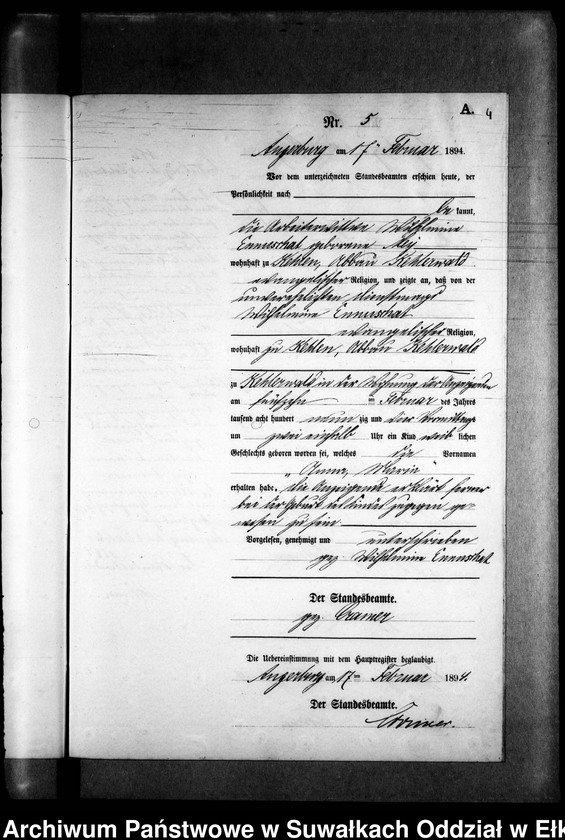 A. 4
Nr. 5
Angerburg am 17ten Februar 1894.
Vor dem unterzeichneten Standesbeamten erschien heute, der
Persönlichkeit nach
be kannt,
die Arbeiterwittwe Wilhelmine
Ennuschat geborene
wohnhaft zu Kehlen, Abbau Kehlerwald
evangelischer Religion, und zeigte an, daß von der
unverehelichten Dienstmagd
Wilhelmine Ennuschat
evangelischer Religion,
wohnhaft zu Kehlen, Abbau Kehlerwald
zu Kehlerwald in der Wohnung der Anzeigenden
am ten Februar des Jahres
tausend acht hundert neun zig und vier Vormittags
um zwei einhalb Uhr ein Kind weib lichen
Geschlechts geboren worden sei, welches die Vornamen
„Anna, Marie“
erhalten habe. Die Anzeigende erklärt ferner
bei der Geburt des Kindes zugegen ge-
wesen zu sein
Vorgelesen, genehmigt und unterschrieben
gez. Wilhelmine Ennuschat
Der Standesbeamte.
gez.
Die Uebereinstimmung mit dem Hauptregister beglaubigt.
Angerburg am 17ten Februar 1894.
Der Standesbeamte.
Archiwum Państwowe w Suwałkach Oddział w Ełk